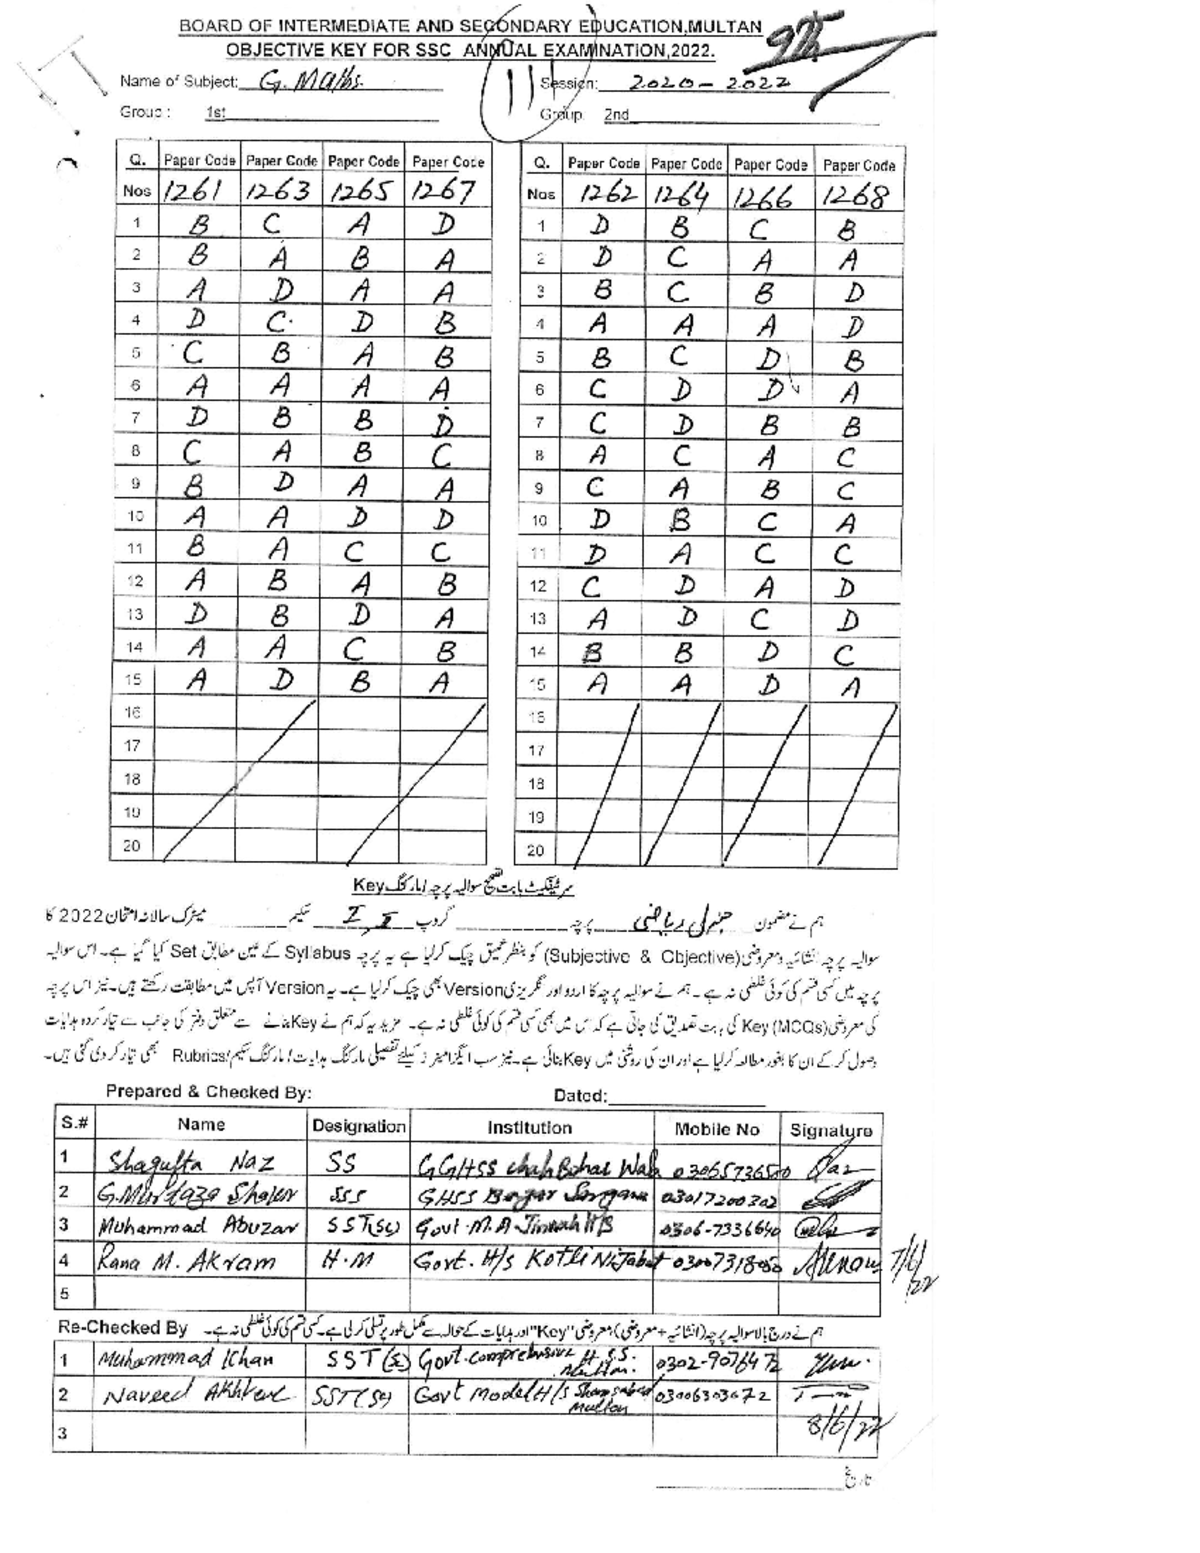 BOARD OF INTERMEDIATE AND SECONDARY EDUCATION,MULTAN
OBJECTIVE KEY FOR SSC ANNUAL EXAMINATION,2022.
Name of Subject: G. Maths. Session: 2020-2022
Group : 1st Group 2nd
Q. Paper Code Paper Code Paper Code Paper Code Q. Paper Code Paper Code Paper Code Paper Code
Nos 1261 1263 1265 1267 Nos 1262 1264 1266 1268
1 B C A D 1 D B C B
2 B A B A 2 D C A A
3 A D A A 3 B C B D
4 D C D B 4 A A A D
5 C B A B 5 B C D B
6 A A A A 6 C D D A
7 D B B D 7 C D B B
8 C A B C 8 A C A C
9 B D A A 9 C A B C
10 A A D D 10 D B C A
11 B A C C 11 D A C C
12 A B A B 12 C D A D
13 D B D A 13 A D C D
14 A A C B 14 B B D C
15 A D B A 15 A A D A
16 16
17 17
18 18
19 19
20 20
سرٹیفکیٹ بابت تصحیح سوالیہ پرچہ/مارکنگ Key
ہم نے مضمون جنرل ریاضی پرچہ گروپ I, II سکیم میٹرک سالانہ امتحان 2022 کا
سوالیہ پرچہ انشائیہ ومعروضی (Subjective & Objective) کو بنظر عمیق چیک کر لیا ہے یہ پرچہ Syllabus کے عین مطابق Set کیا گیا ہے۔ اس سوالیہ
پرچہ میں کسی قسم کی کوئی غلطی نہ ہے۔ ہم نے سوالیہ پرچہ کا اردو اور انگریزی Version بھی چیک کر لیا ہے۔ یہ Version آپس میں مطابقت رکھتے ہیں۔ نیز اس پرچہ
کی معروضی (MCQs) Key کی بابت تصدیق کی جاتی ہے کہ اس میں بھی کسی قسم کی کوئی غلطی نہ ہے۔ مزید یہ کہ ہم نے Key بنانے سے متعلق دفتر کی جانب سے تیار کردہ ہدایات
وصول کر کے ان کا بغور مطالعہ کر لیا ہے اور ان کی روشنی میں Key بنائی ہے۔ نیز سب ایگزامینرز کیلئے تفصیلی مارکنگ ہدایت/مارکنگ سکیم/Rubrics بھی تیار کر دی گئی ہیں۔
Prepared & Checked By: Dated:
S.# Name Designation Institution Mobile No Signature
1 Shagufta Naz SS GGHSS chah Bohar Wala 03065736500 Naz
2 G.Murtaza Shaker SSS GHSS 03017200302
3 Muhammad Abuzar SST(Sc) Govt. M.A Jinnah H/S 0306-7336640
4 Rana M. Akram H.M Govt. H/s Kotli Nijabat 03007318050 7/6/22
5
Re-Checked By ہم نے درج بالا سوالیہ پرچہ (انشائیہ + معروضی) معروضی "Key" اور ہدایات کے حوالہ سے مکمل طور پر تسلی کر لی ہے۔ کسی قسم کی کوئی غلطی نہ ہے۔
1 Muhammad Khan SST(S) Govt. comprehensive H.S.S. Multan. 0302-9076472
2 Naveed Akhter SST(Sc) Govt Model H/s Shamsabad Multan 03006303672
8/6/22
3
تاریخ